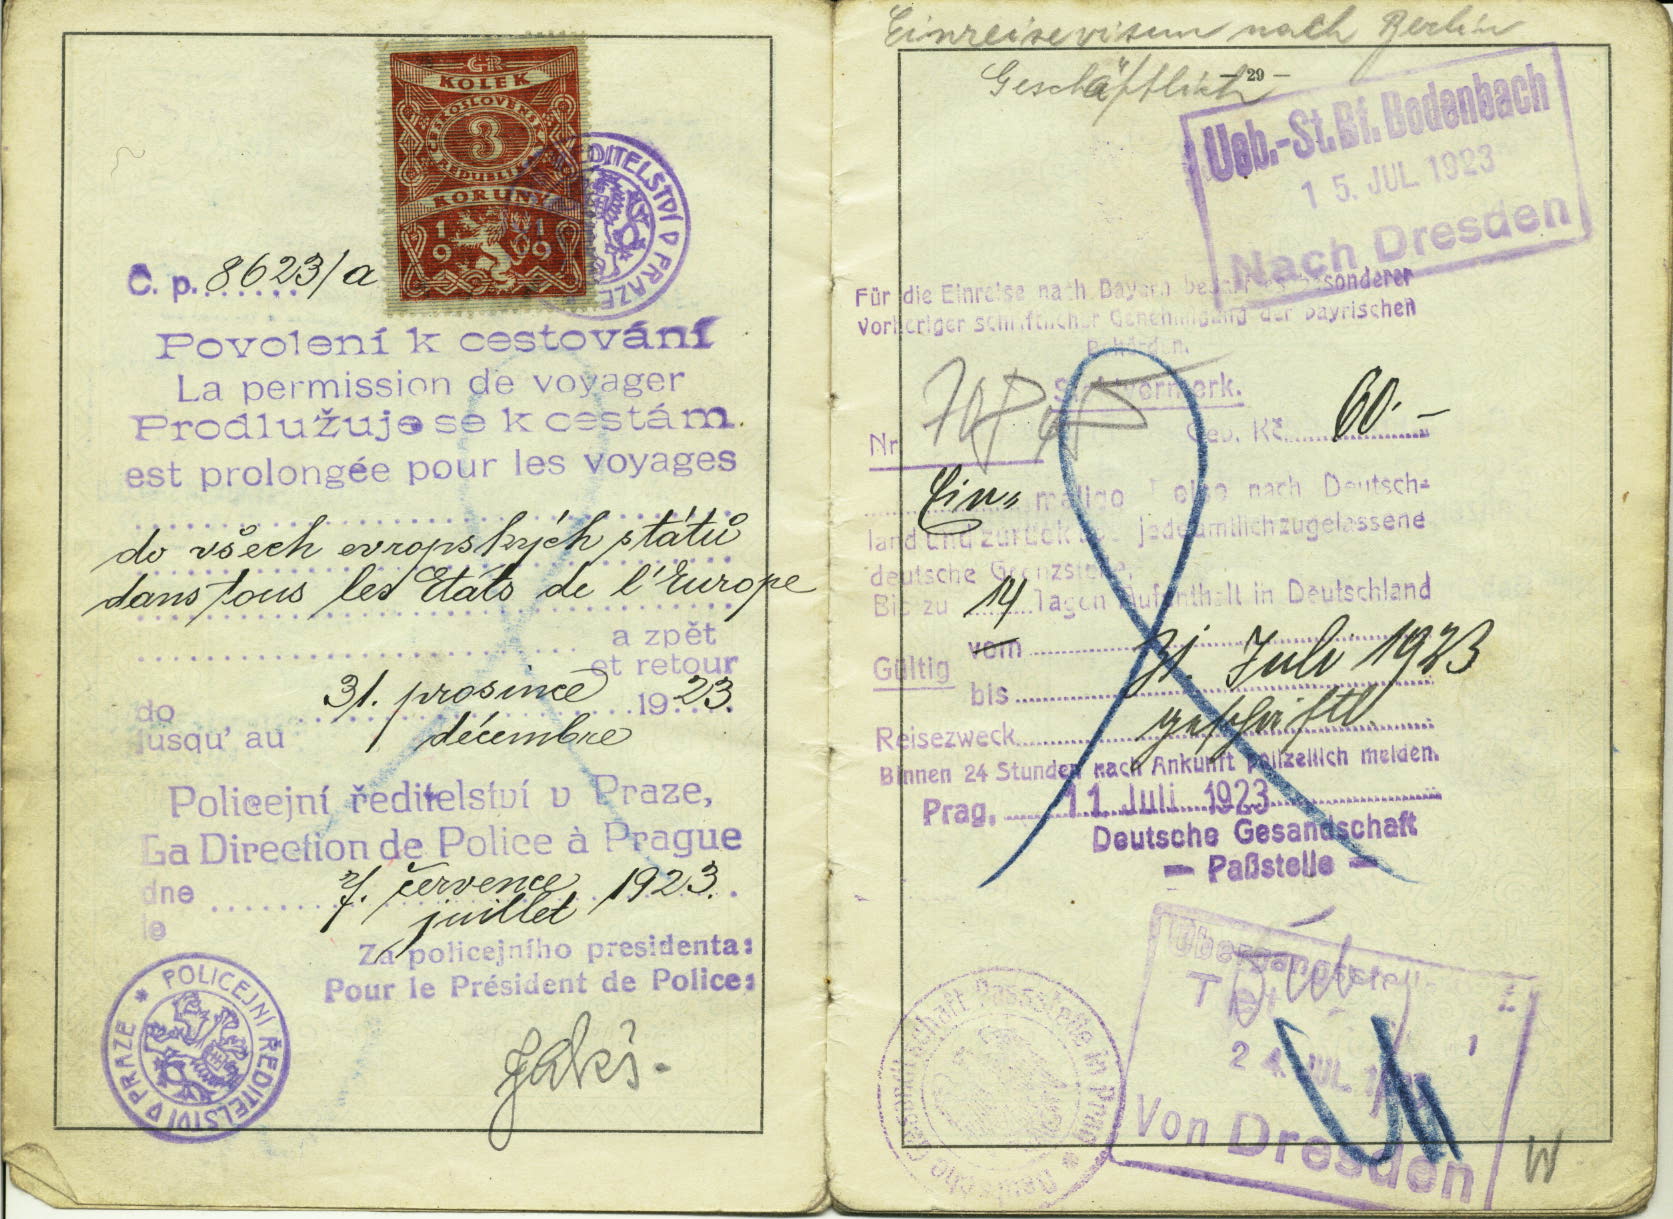 ČR
KOLEK
ČESKOSLOVENSKÁ
3
REPUBLIKA
KORUNY
1919
POLICEJNÍ ŘEDITELSTVÍ V PRAZE
Č. p. 8623/a
Povolení k cestování
La permission de voyager
Prodlužuje se k cestám
est prolongée pour les voyages
do všech evropských států
dans tous les Etats de l'Europe
a zpět
et retour
do 31. prosince 1923.
jusqu' au décembre
Policejní ředitelství v Praze,
La Direction de Police à Prague
dne 7. července 1923.
le juillet
Za policejního presidenta:
Pour le Président de Police:
* POLICEJNÍ ŘEDITELSTVÍ V PRAZE
Einreisevisum nach Berlin
Geschäftlich
— 29 —
Ueb.-St.Bf. Bodenbach
15. JUL. 1923
Nach Dresden
Für die Einreise nach Bayern bedarf es besonderer
vorheriger schriftlicher Genehmigung der bayrischen
Behörden.
Sichtvermerk.
Nr Geb. Kč 60.-
Ein= malige Reise nach Deutsch=
land und zurück über jede amtlich zugelassene
deutsche Grenzstelle.
Bis zu 14 Tagen Aufenthalt in Deutschland
Gültig vom
bis 31. Juli 1923
Reisezweck geschäftl.
Binnen 24 Stunden nach Ankunft polizeilich melden.
Prag, 11. Juli 1923
Deutsche Gesandschaft
— Paßstelle —
Übergangsstelle
24. JUL.
Von Dresden
Deutsche Gesandtschaft Passstelle in Prag *
W